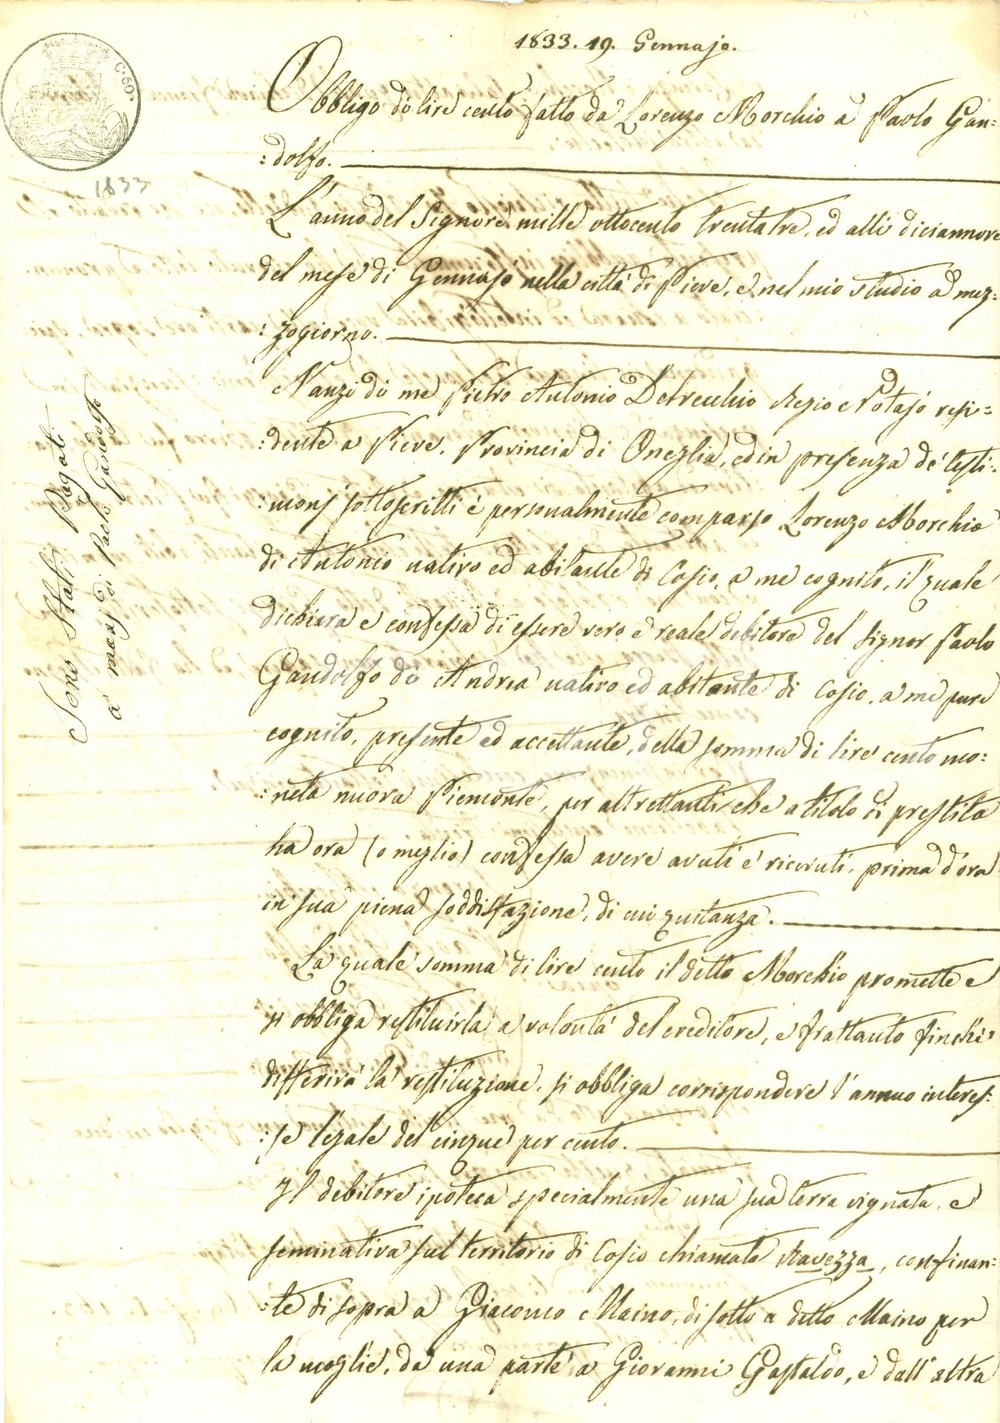 1833. 19. Gennajo.
C. 60.
1833
Obbligo di lire cento fatto da Lorenzo Morchio a Paolo Gan=
=dolfo.
L'anno del Signore mille ottocento trentatre, ed alli diciannove
del mese di Gennajo nella città di Pieve, e nel mio studio a mez=
=zogiorno.
Nanzi di me Pietro Antonio Delvecchio Regio Notajo resi=
=dente a Pieve, Provincia di Oneglia, ed in presenza de' testi=
=monj sottoscritti è personalmente comparso Lorenzo Morchio
di Antonio nativo ed abitante di Cosio, a me cognito, il quale
dichiara e confessa di essere vero e reale debitore del Signor Paolo
Gandolfo di Andrea nativo ed abitante di Cosio, a me pure
cognito, presente ed accettante, della somma di lire cento mo=
=neta nuova Piemonte, per altrettanti che a titolo di prestito
ha ora (o meglio) confessa avere avuti e ricevuti, prima d'ora
in sua piena soddisfazione, di cui quitanza.
La quale somma di lire cento il detto Morchio promette e
si obbliga restituirla a volontà del creditore, e frattanto finchè
differirà la restituzione, si obbliga corrispondere l'annuo interes=
=se legale del cinque per cento.
Il debitore ipoteca specialmente una sua terra vignata, e
seminativa sul territorio di Cosio chiamato Ravezza, confinan=
=te di sopra a Giacomo Maino, di sotto a detto Maino per
la moglie, da una parte a Giovanni Gastaldo, e dall'altra
Sono Stati Pagati
a mani di Paolo Gandolfo